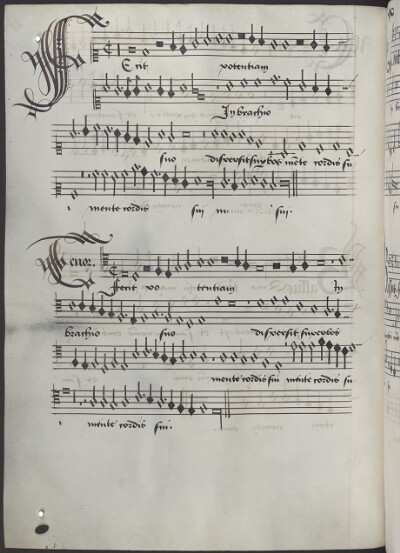 Fecit potentiam
In brachio
suo dispersit superbos mente cordis su
i mente cordis sui su sui.
Tenor.
Fecit po tentiam In
brachio suo dispersit superbos
mente cordis sui mente cordis su
i mente cordis sui.